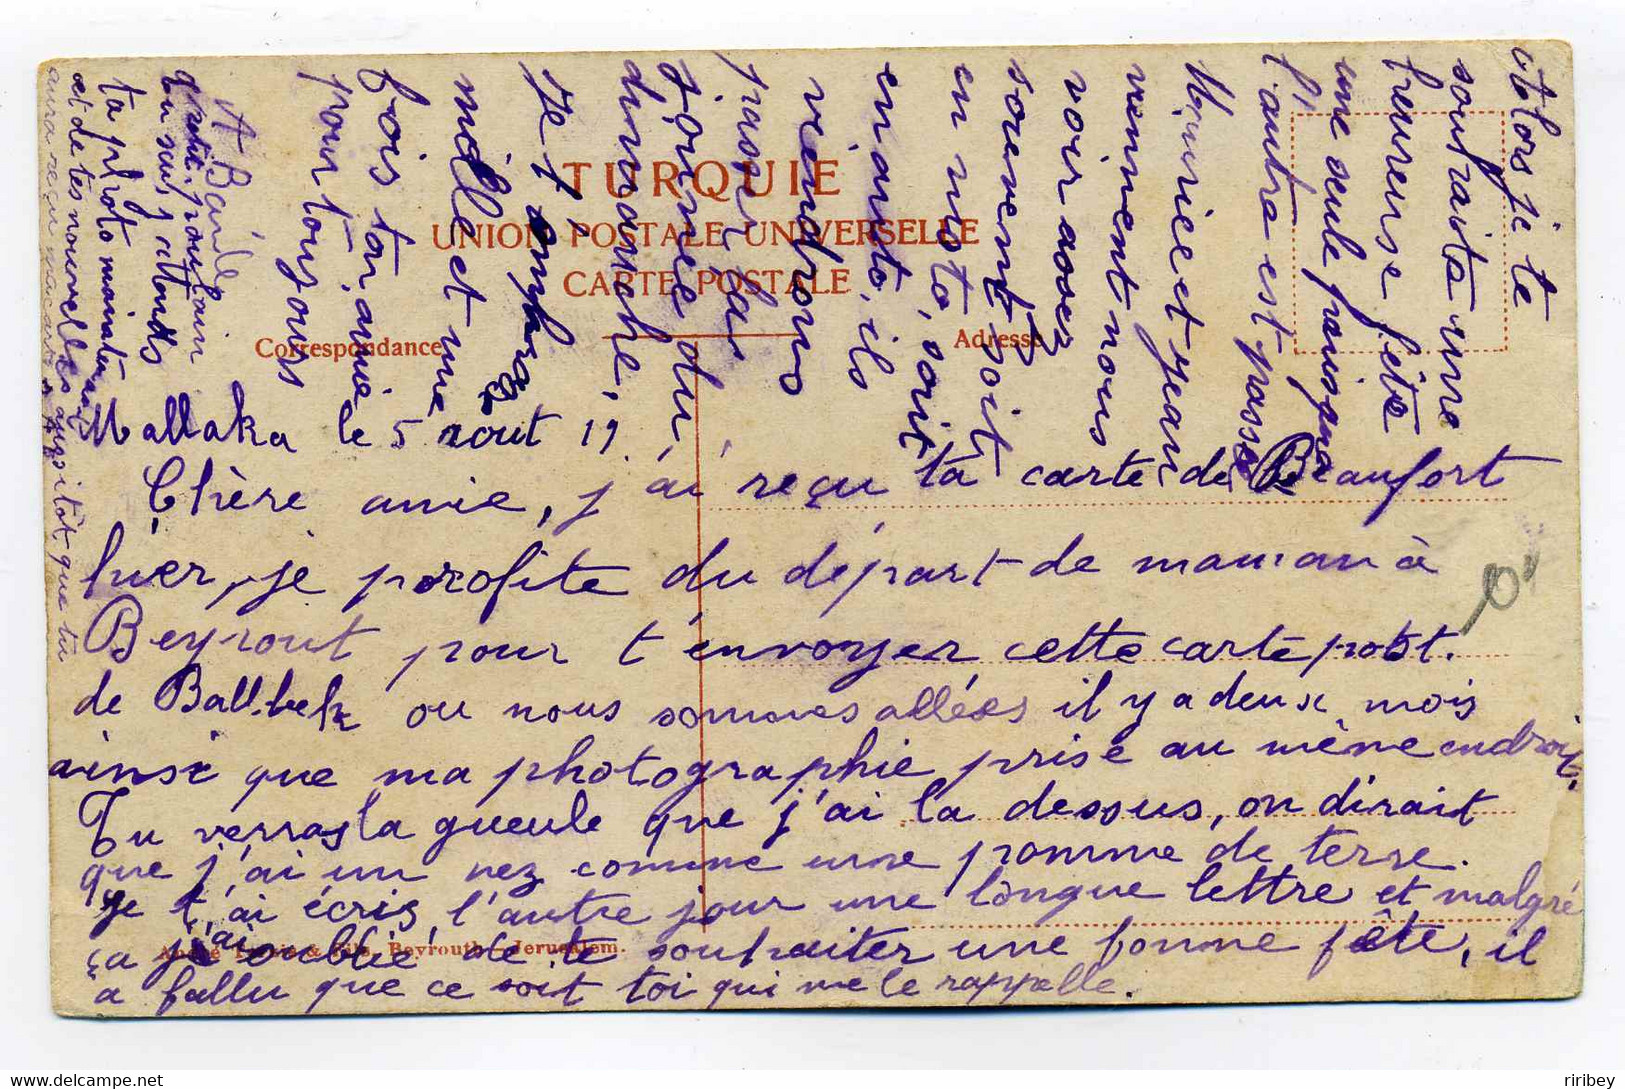 TURQUIE
UNION POSTALE UNIVERSELLE
CARTE POSTALE
Correspondance
Adresse
Mallaka le 5 aout 19
Chère amie, j'ai reçu ta carte de Beaufort
hier, je profite du départ de maman à
Beyrout pour t'envoyer cette carte post.
de Ballbek ou nous sommes allées il y a deux mois
ainsi que ma photographie prise au même endroit.
Tu verras la gueule que j'ai la dessus, on dirait
que j'ai un nez comme une pomme de terre.
Je t'ai écris l'autre jour une longue lettre et malgré
ça j'ai oublié de te souhaiter une bonne fête, il
a fallu que ce soit toi qui me le rappelle.
Beyrouth - Jerusalem.
Alors je te
souhaite une
heureuse fête
une seule française
l'autre est passée
Maurice et Jean
viennent nous
voir assez
souvent soit
en moto, soit
en auto, ils
viendrons
passer la
journée du
dimanche,
Je t'embrasse
mille et une
fois ton amie
pour toujours
A Baule
tu sais j'attends
ta photo maintenant
et de tes nouvelles aussitôt que tu
aura reçu ma carte
riribey